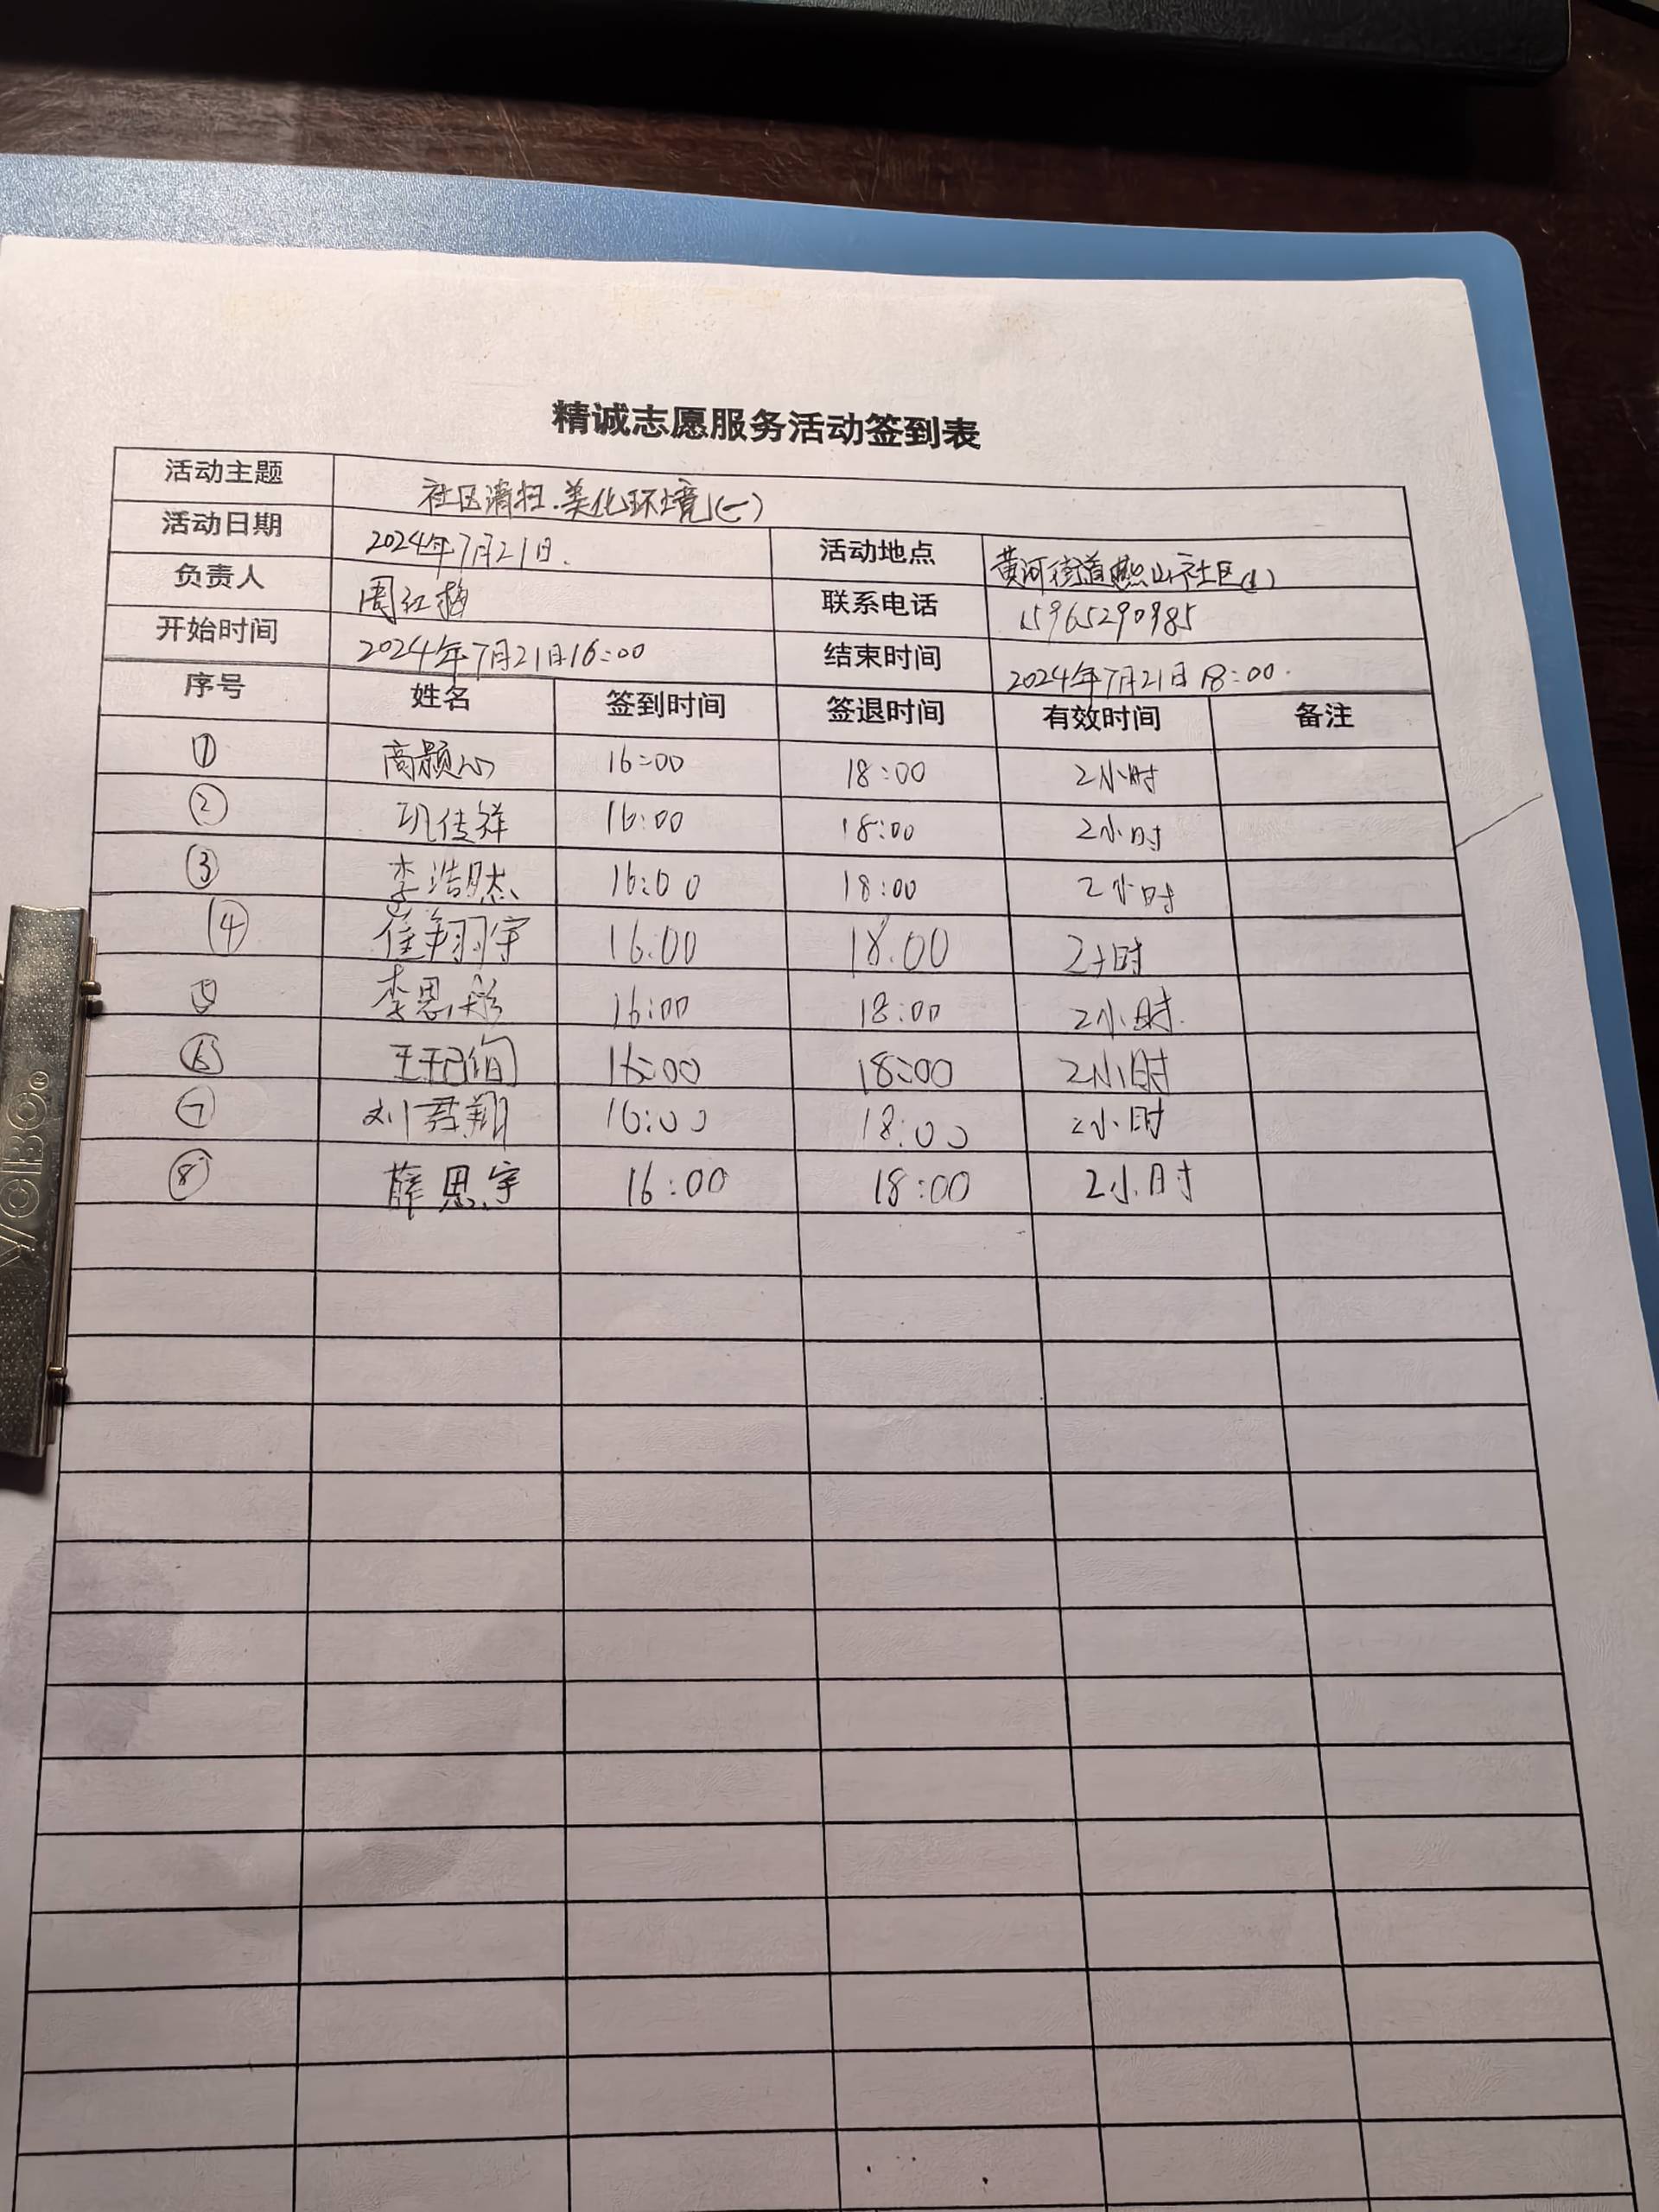 精诚志愿服务活动签到表
活动主题 社区清扫.美化环境(一)
活动日期 2024年7月21日. 活动地点 黄河街道燕山社区(1)
负责人 周红梅 联系电话 15965290985
开始时间 2024年7月21日16:00 结束时间 2024年7月21日18:00.
序号 姓名 签到时间 签退时间 有效时间 备注
① 高颢心 16:00 18:00 2小时
② 巩传祥 16:00 18:00 2小时
③ 李浩然 16:00 18:00 2小时
④ 崔翔宇 16.00 18.00 2小时
⑤ 李思彤 16:00 18:00 2小时.
⑥ 王 16:00 18:00 2小时
⑦ 刘君翔 16:00 18:00 2小时
⑧ 薛思宇 16:00 18:00 2小时